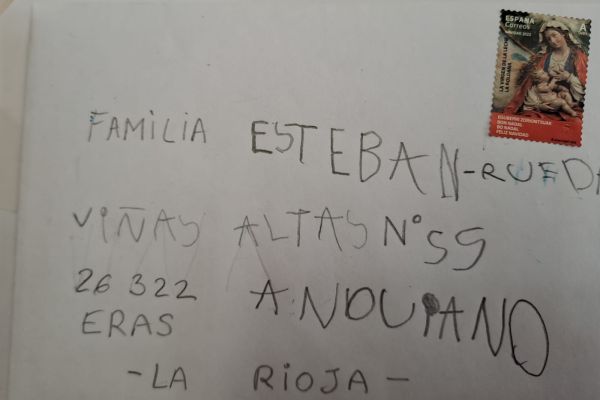 ESPAÑA
Correos
NAVIDAD 2022
A
LA VIRGEN DE LA LECHE
EGUBERRI ZORIONTSUAK
BON NADAL
BO NADAL
FELIZ NAVIDAD
FAMILIA ESTEBAN-RUEDA
VIÑAS ALTAS Nº 59
26 322 ANGUIANO
ERAS
- LA RIOJA -